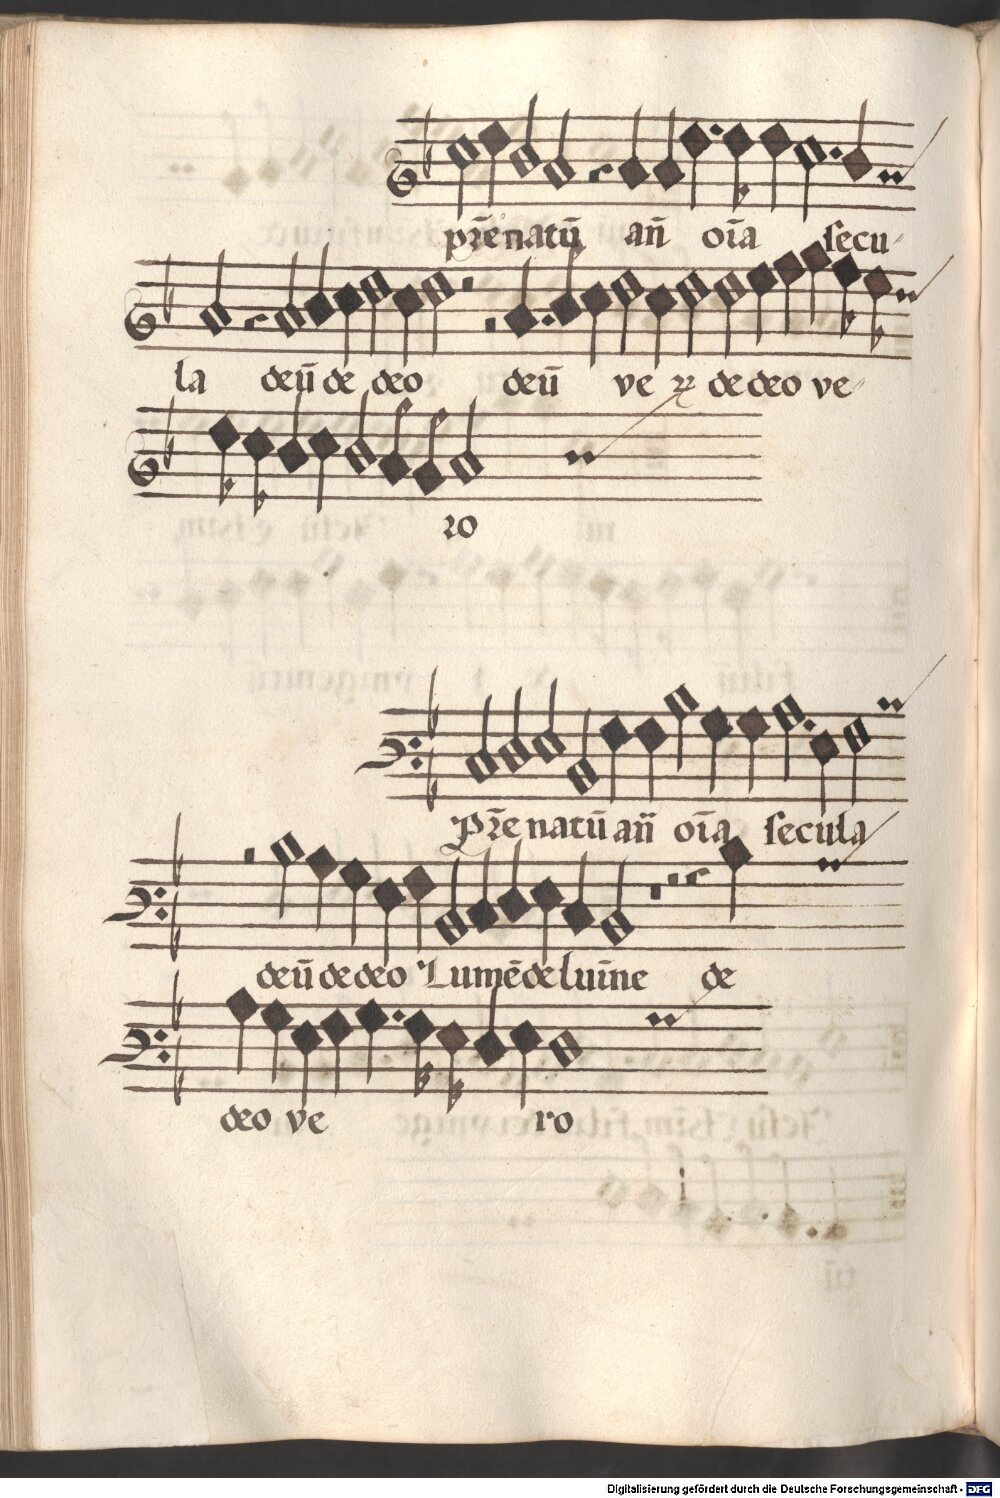 pr̄e natū an̄ oīa secu-
la deū de deo deū ve ꝝ de deo ve-
ro
Pr̄e natū an̄ oīa secula
deū de deo Lumē de luīne de
deo ve ro
Digitalisierung gefördert durch die Deutsche Forschungsgemeinschaft - DFG